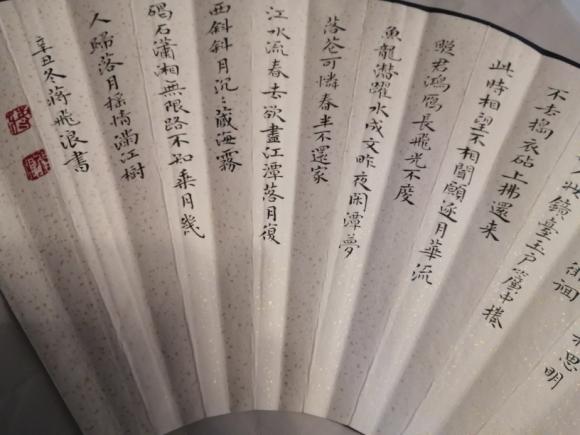 思明
徊
人妝鏡臺玉戶簾中捲
不去搗衣砧上拂還來
此時相望不相聞願逐月華流
照君鴻鴈長飛光不度
魚龍潛躍水成文昨夜閑潭夢
落花可憐春半不還家
江水流春去欲盡江潭落月復
西斜斜月沉〻藏海霧
碣石瀟湘無限路不知乘月幾
人歸落月搖情滿江樹
辛丑冬蔣飛浪書